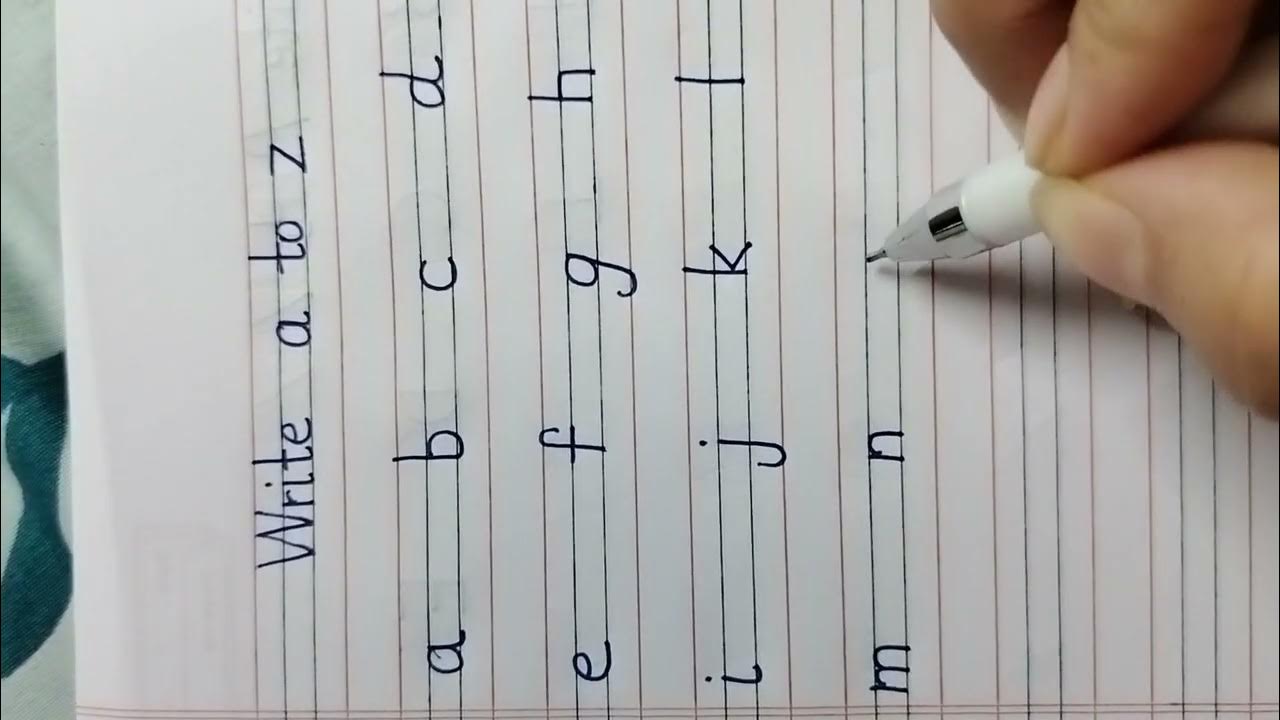 Write a to z
a b c d
e f g h
i j k l
m n